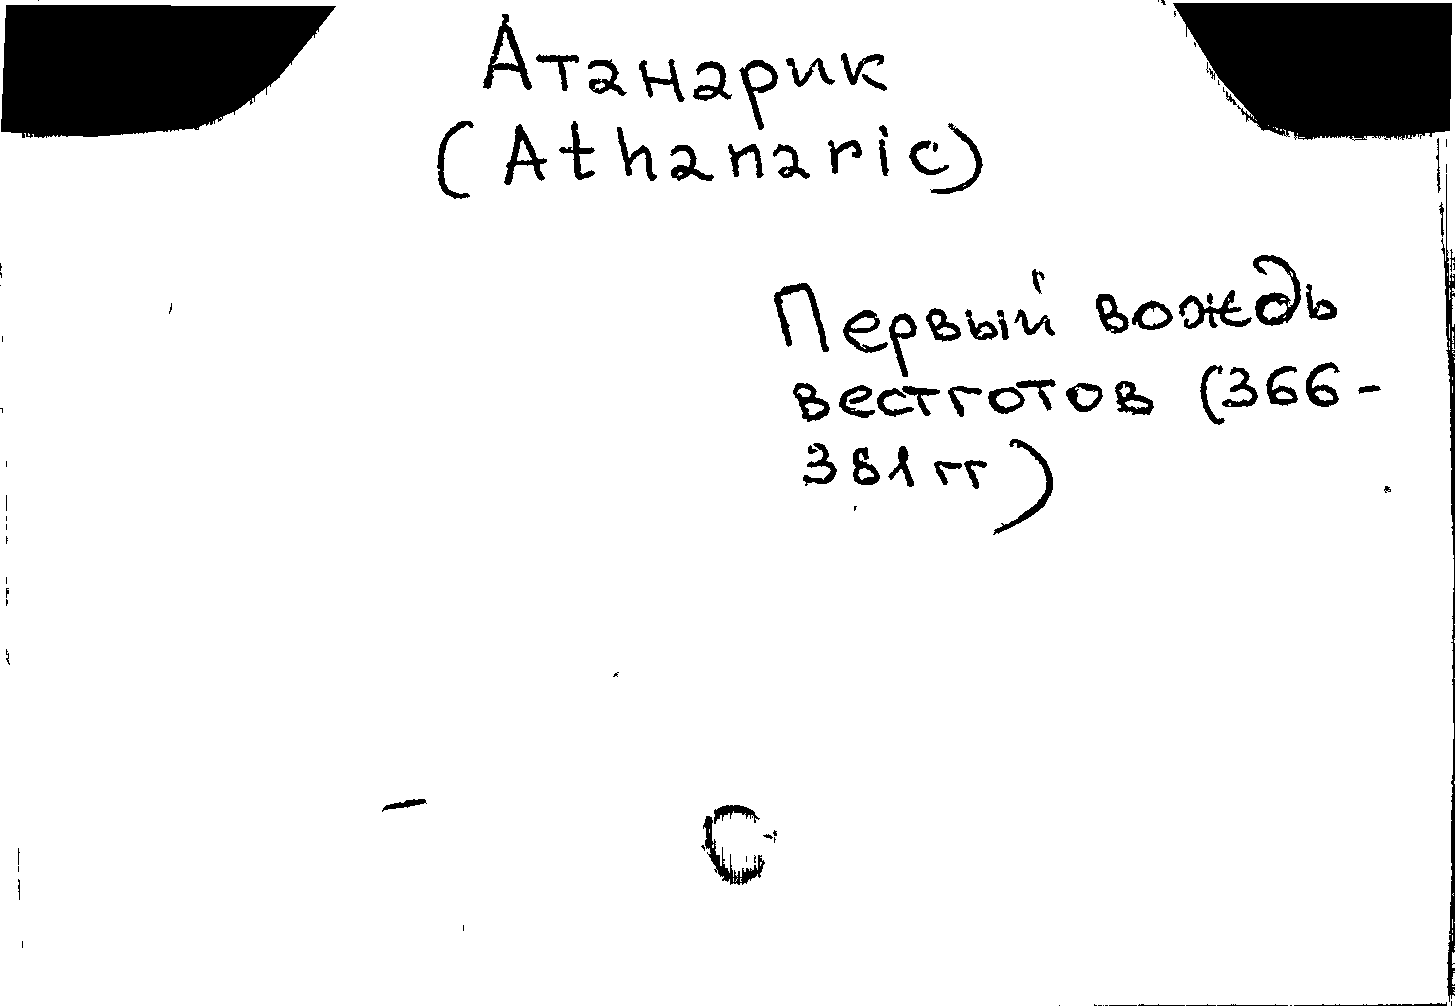 Атанарик
(Athanaric)
Первый вождь
вестготов (366-
381 гг)